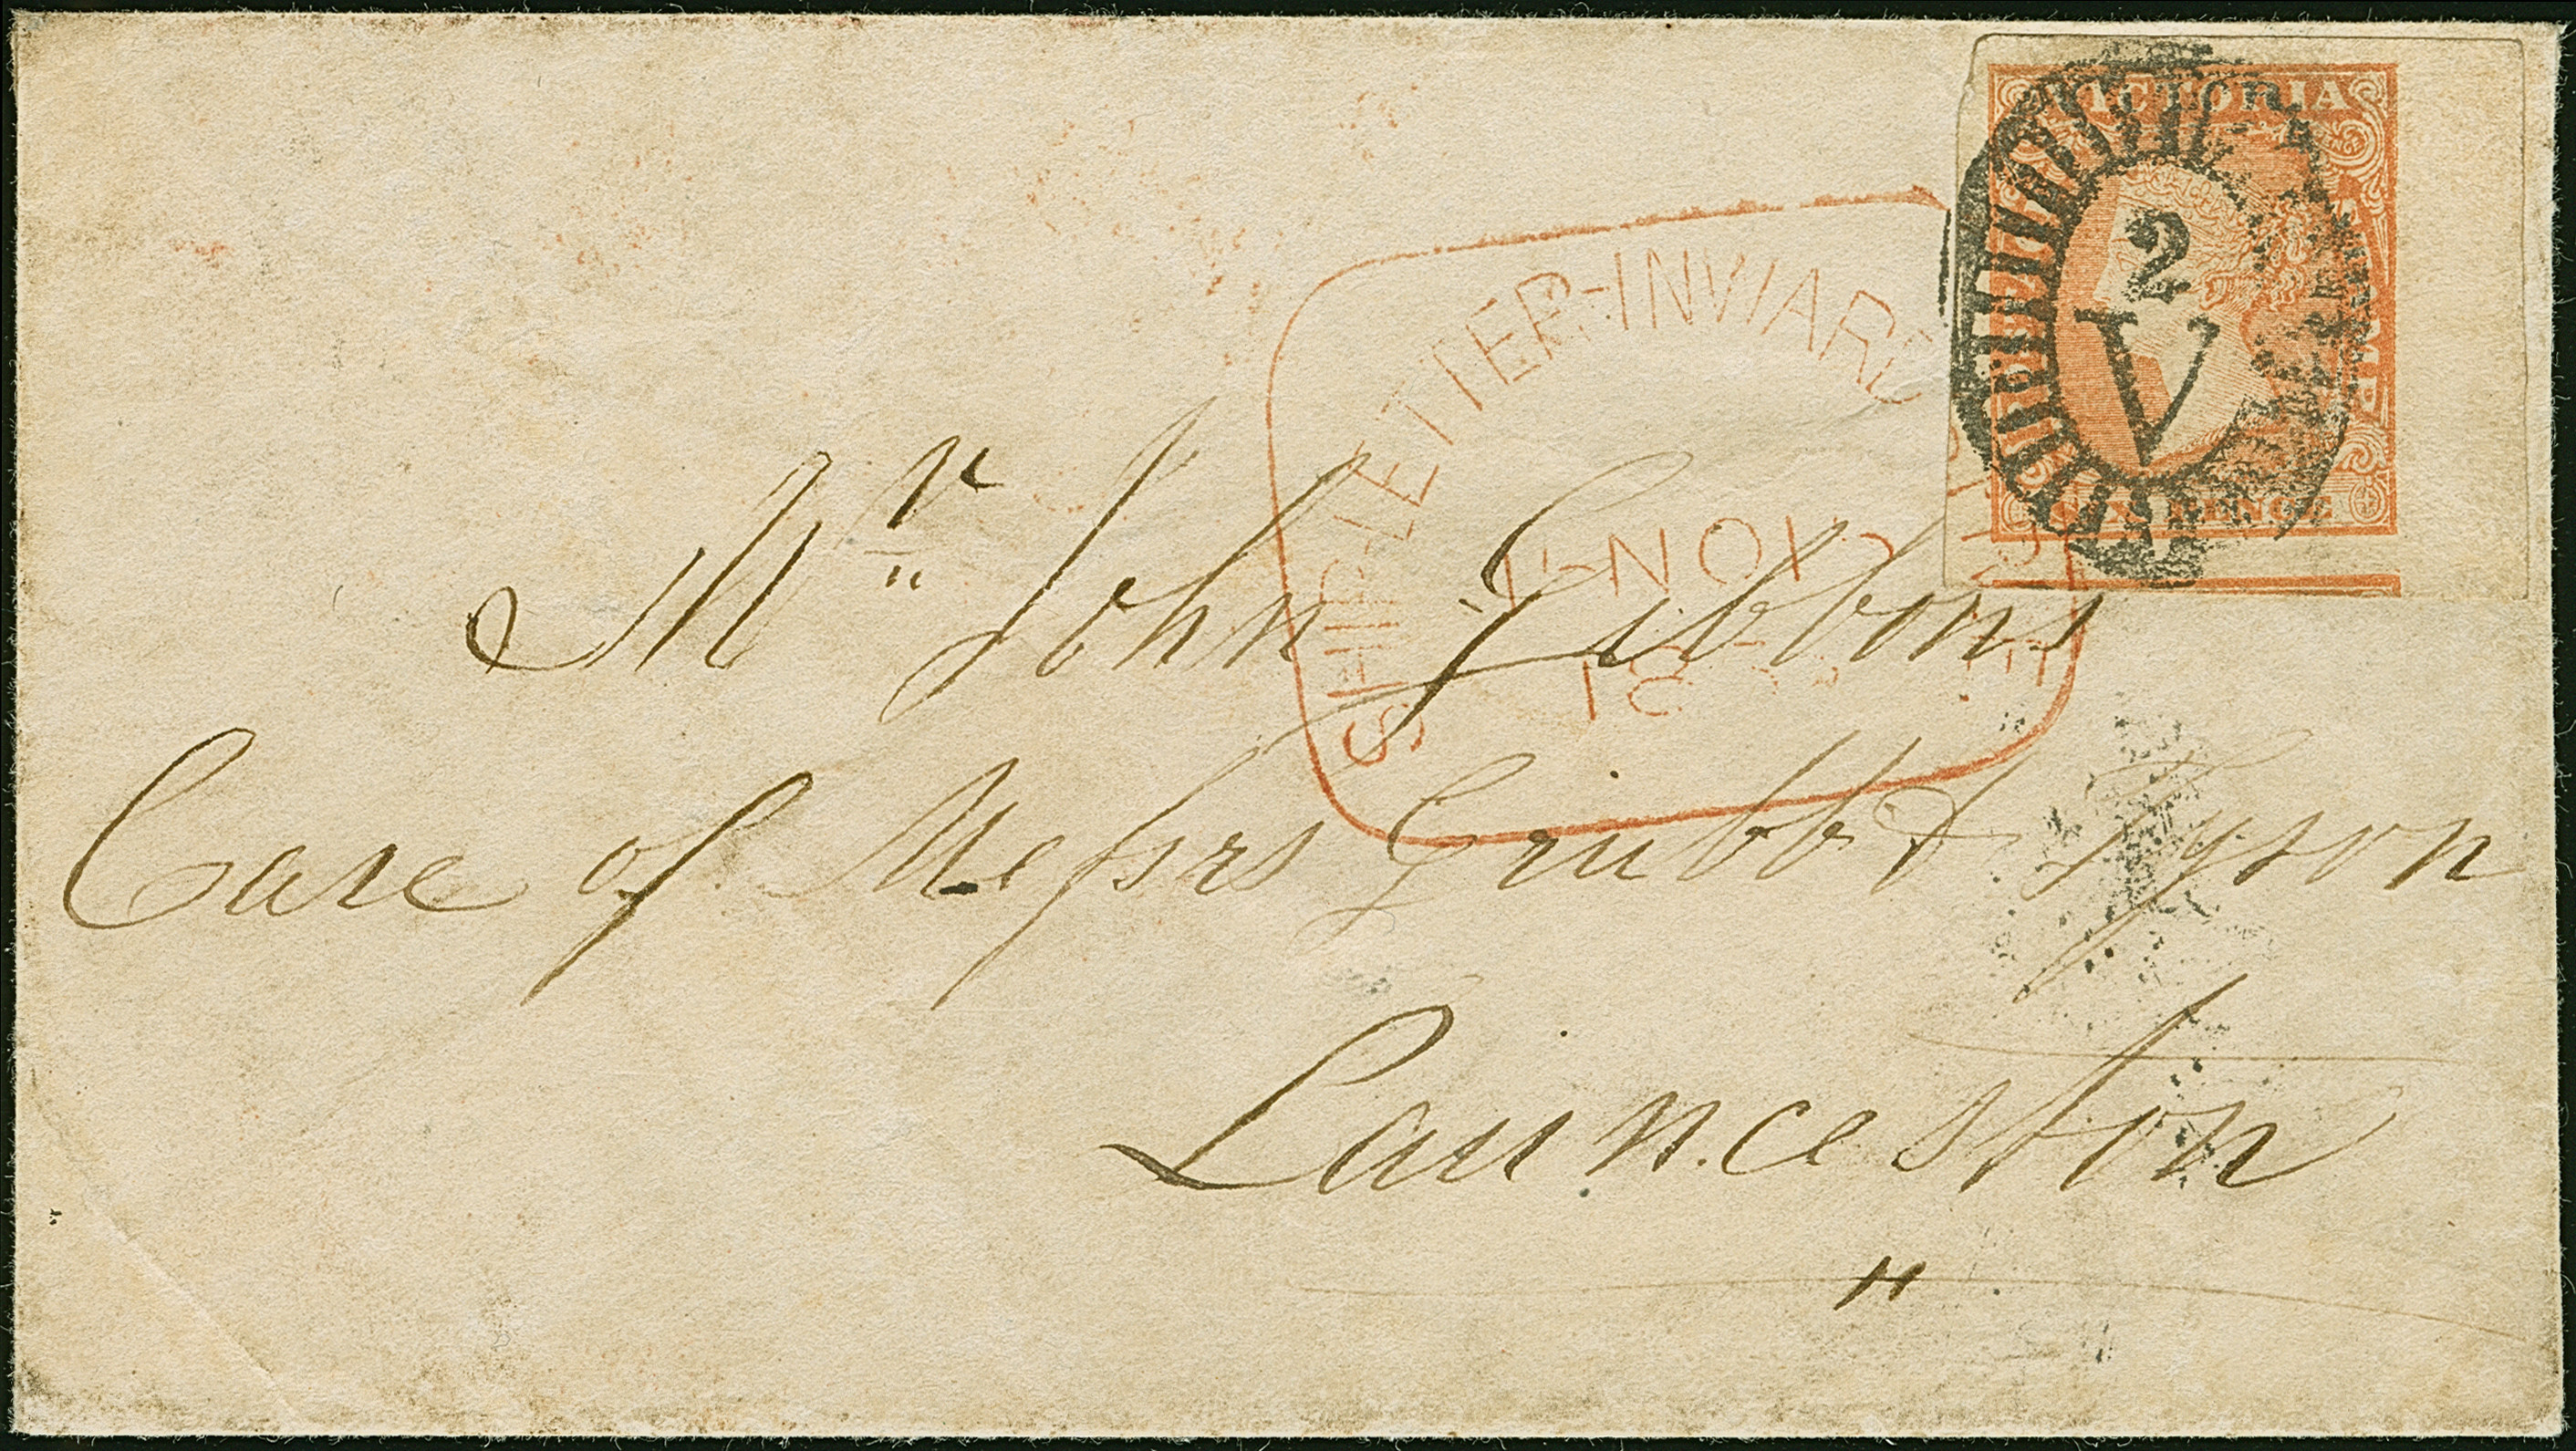 VICTORIA
SIX PENCE
2
V
SHIP-LETTER-INWARD
NOV
Mr John Gibbons
Care of Messrs Grubb & Tyson
Launceston